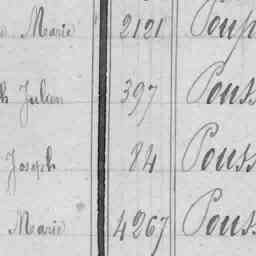 Marie 2121 Poup
h Julien 397 Pouss
Joseph 84 Pouss
Marie 4267 Pouss